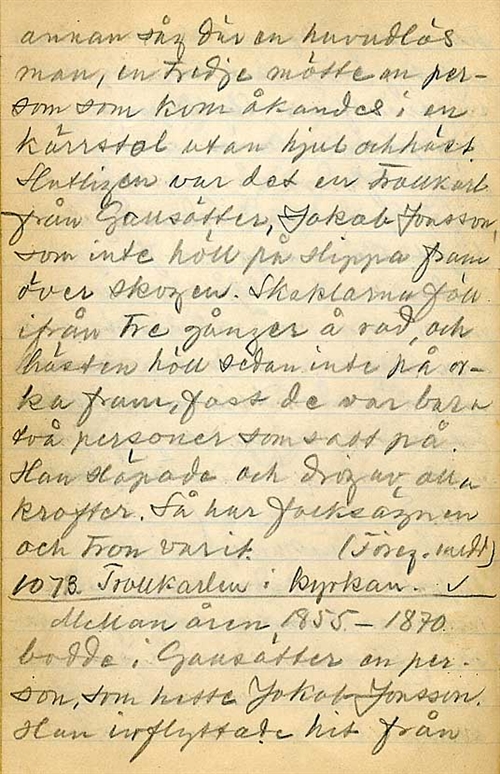 annan såg där en huvudlös
man, en tredje mötte en per-
son som kom åkandes i en
kärrstol utan hjul och häst.
Slutligen var det en Trollkarl
från Gausätter, Jakob Jonsson,
som inte höll på slippa fram
över skogen. Skaklarna föll
ifrån tre gånger å rad, och
hästen höll sedan inte på or-
ka fram, fast de var bara
två personer som satt på.
Han släpade och drog av alla
krafter. Så har folksägnen
och tron varit. (Föreg. medd)
1073. Trollkarlen i kyrkan. ✓
Mellan åren 1855 – 1870
bodde i Gausätter en per-
son, som hette Jakob Jonsson.
Han inflyttade hit från